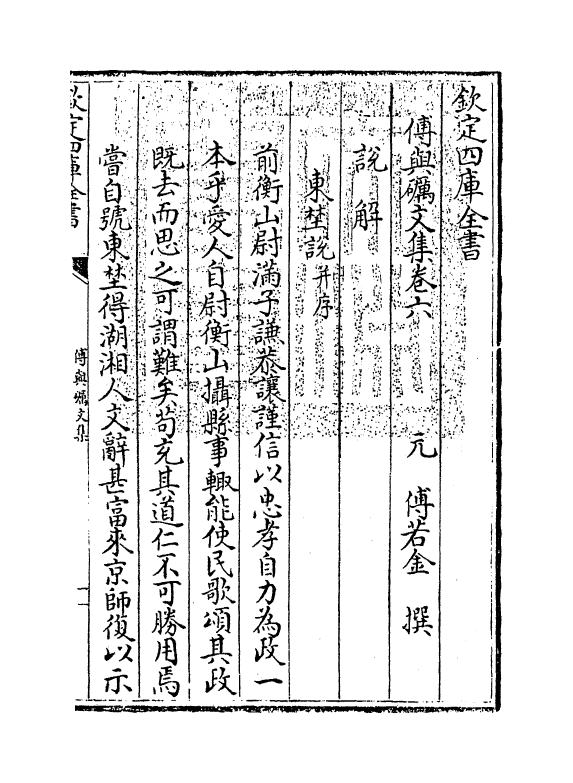 欽定四庫全書
傅與礪文集卷六　　元　傅若金　撰
說解
東埜說并序
前衡山尉滿子謙恭讓謹信以忠孝自力為政一
本乎愛人自尉衡山攝縣事輙能使民歌頌其政
既去而思之可謂難矣苟充其道仁不可勝用焉
嘗自號東埜得湖湘人文辭甚富來京師復以示
欽定四庫全書
傅與礪文集